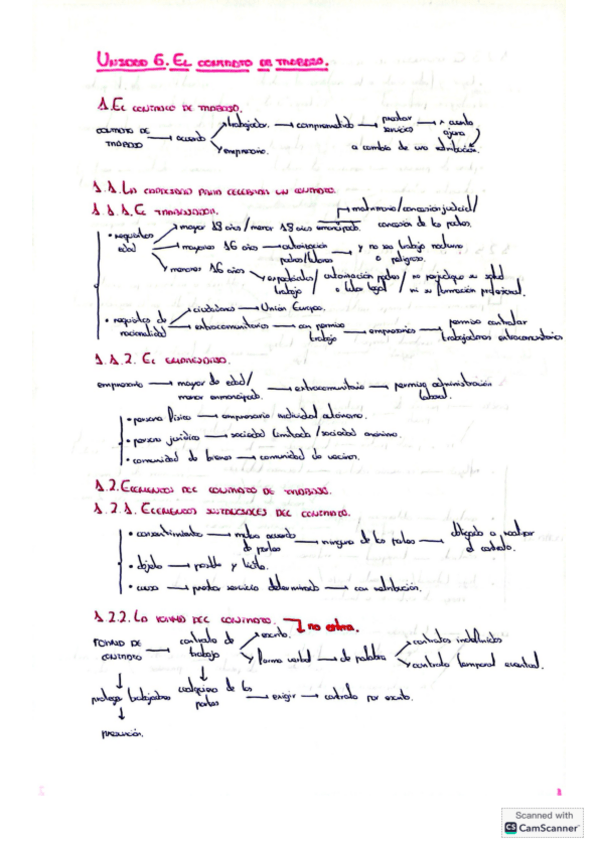 UNIDAD 6. EL CONTRATO DE TRABAJO.
1. EL CONTRATO DE TRABAJO.
CONTRATO DE TRABAJO → acuerdo → trabajador. → comprometido → prestar servicios → x cuenta ajena
→ empresario. a cambio de una retribución.
1.1. LA CAPACIDAD PARA CELEBRAR UN CONTRATO.
1.1.1. EL TRABAJADOR. → matrimonio/concesión judicial/
• requisitos edad → mayor 18 años/menor 18 años emancipado. concesión de los padres.
→ mayores 16 años → autorización padres/tutores → y no sea trabajo nocturno o peligroso.
→ menores 16 años → espectáculos/trabajo autorización padres/o tutor legal/no perjudique su salud/ni su formación profesional.
• requisitos de nacionalidad → ciudadanos → Unión Europea.
→ extracomunitarios → con permiso trabajo → empresarios → permiso contratar trabajadores extracomunitarios
1.1.2. EL EMPRESARIO.
empresario → mayor de edad/menor emancipado. → extracomunitario → permiso administración laboral.
• persona física → empresario individual autónomo.
• persona jurídica → sociedad limitada/sociedad anónima.
• comunidad de bienes → comunidad de vecinos.
1.2. ELEMENTOS DEL CONTRATO DE TRABAJO.
1.2.1. ELEMENTOS SUSTANCIALES DEL CONTRATO.
• consentimiento → mutuo acuerdo de partes → ninguna de las partes → obligado a realizar el contrato.
• objeto → posible y lícito.
• causa → prestar servicio determinado → con retribución.
1.2.2. LA FORMA DEL CONTRATO. → no entra.
FORMAS DE CONTRATO → contrato de trabajo → escrito.
→ forma verbal → de palabra → contratos indefinidos
→ contrato temporal eventual.
↓ ↓
protege trabajadores cualquiera de las partes → exigir → contrato por escrito.
↓
presunción.
1
Scanned with
CS CamScanner